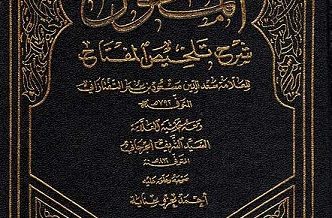 المطول
شرح تلخيص المفتاح
للعلامة سعد الدين مسعود بن عمر التفتازاني
المتوفى ٧٩٢ هـ
ومعه حاشية العلامة
السيد الشريف الجرجاني
المتوفى ٨١٦ هـ
صححه وعلق عليه
أحمد عزو عناية